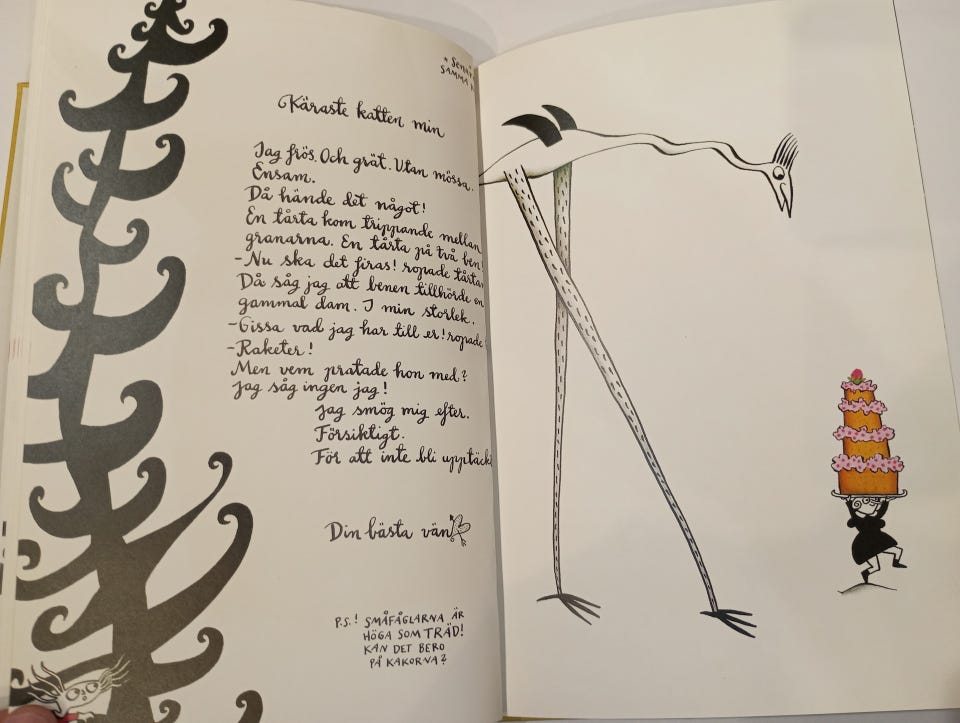 Käraste katten min
Jag frös. Och grät. Utan mössa.
Ensam.
Då hände det något!
En tårta kom trippande mellan
granarna. En tårta på två ben!
-Nu ska det firas! ropade tårtan
Då såg jag att benen tillhörde en
gammal dam. I min storlek.
-Gissa vad jag har till er! ropade
-Raketer!
Men vem pratade hon med?
Jag såg ingen jag!
Jag smög mig efter.
Försiktigt.
För att inte bli upptäckt
Din bästa vän
P.S.! SMÅFÅGLARNA ÄR
HÖGA SOM TRÄD!
KAN DET BERO
PÅ KAKORNA?